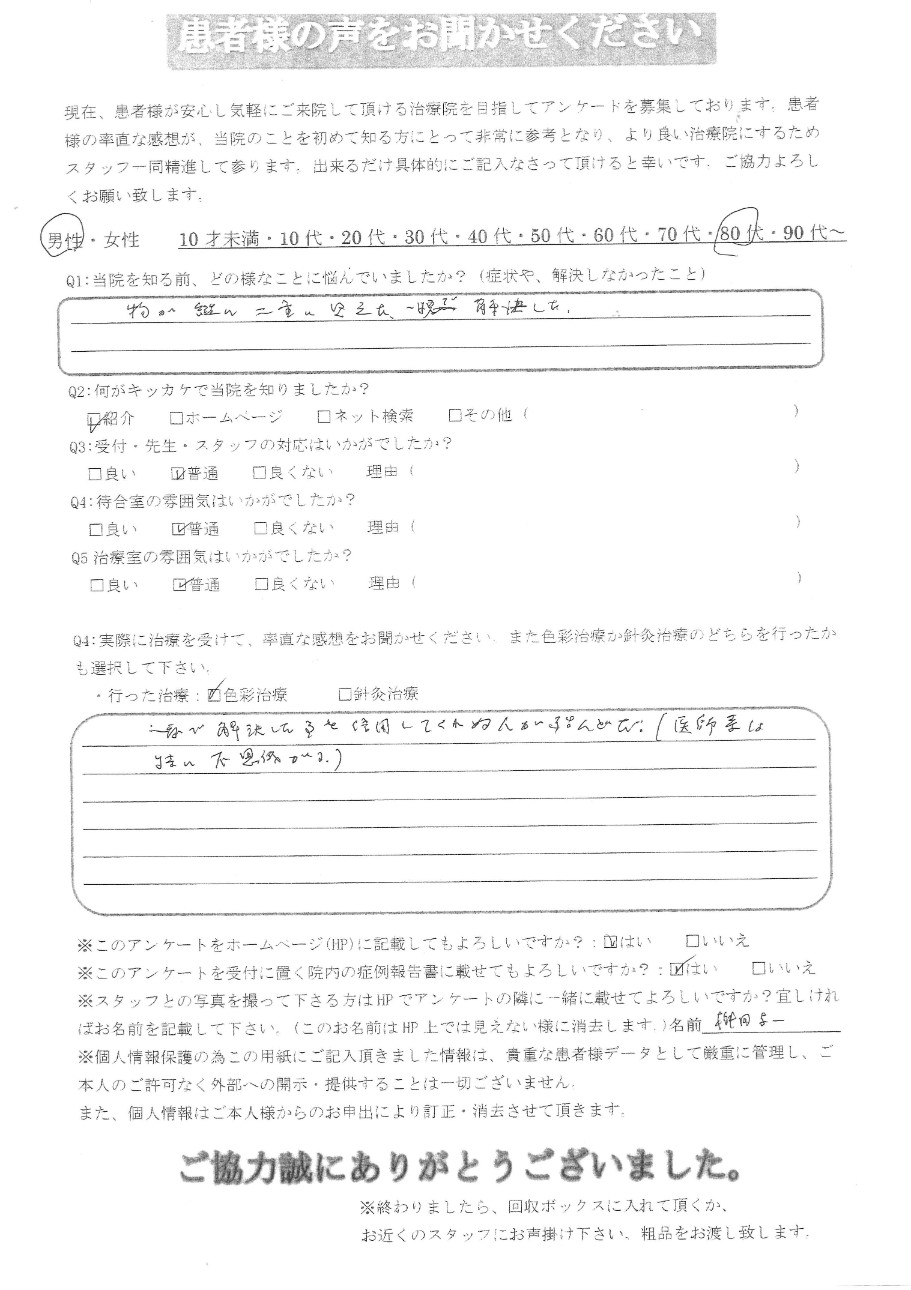 患者様の声をお聞かせください
現在、患者様が安心し気軽にご来院して頂ける治療院を目指してアンケートを募集しております。患者
様の率直な感想が、当院のことを初めて知る方にとって非常に参考となり、より良い治療院にするため
スタッフ一同精進して参ります。出来るだけ具体的にご記入なさって頂けると幸いです。ご協力よろし
くお願い致します。
男性・女性 10才未満・10代・20代・30代・40代・50代・60代・70代・80代・90代～
Q1:当院を知る前、どの様なことに悩んでいましたか？（症状や、解決しなかったこと）
物が縦に二重に見えた、一晩で解決した。
Q2:何がキッカケで当院を知りましたか？
☑紹介 □ホームページ □ネット検索 □その他（ ）
Q3:受付・先生・スタッフの対応はいかがでしたか？
□良い ☑普通 □良くない 理由（ ）
Q4:待合室の雰囲気はいかがでしたか？
□良い ☑普通 □良くない 理由（ ）
Q5 治療室の雰囲気はいかがでしたか？
□良い ☑普通 □良くない 理由（ ）
Q4:実際に治療を受けて、率直な感想をお聞かせください。また色彩治療か針灸治療のどちらを行ったか
も選択して下さい。
・行った治療：☑色彩治療 □針灸治療
解決した 信用してくれぬ人が殆んどだ。（医師等は
特に不思議がる。）
※このアンケートをホームページ(HP)に記載してもよろしいですか？：☑はい □いいえ
※このアンケートを受付に置く院内の症例報告書に載せてもよろしいですか？：☑はい □いいえ
※スタッフとの写真を撮って下さる方はHPでアンケートの隣に一緒に載せてよろしいですか？宜しけれ
ばお名前を記載して下さい。(このお名前はHP上では見えない様に消去します。)名前
※個人情報保護の為この用紙にご記入頂きました情報は、貴重な患者様データとして厳重に管理し、ご
本人のご許可なく外部への開示・提供することは一切ございません。
また、個人情報はご本人様からのお申出により訂正・消去させて頂きます。
ご協力誠にありがとうございました。
※終わりましたら、回収ボックスに入れて頂くか、
お近くのスタッフにお声掛け下さい。粗品をお渡し致します。